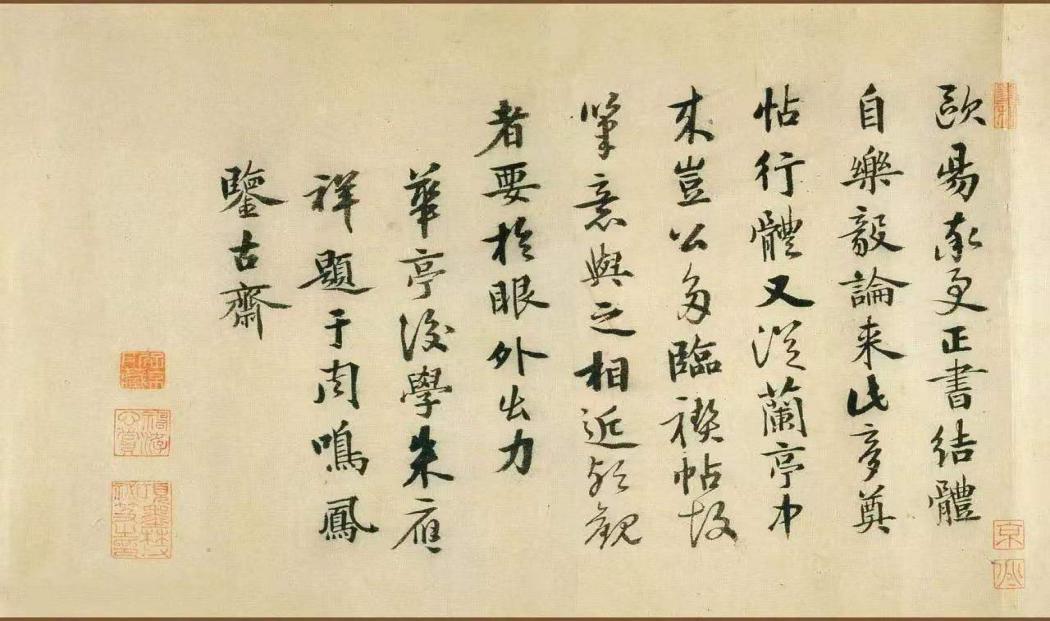 歐昜率更正書結體
自樂毅論來此夢奠
帖行體又從蘭亭中
來豈公多臨禊帖故
筆意與之相近歟觀
者要於眼外出力
華亭後學朱應
祥題于周鳴鳳
鑒古齋